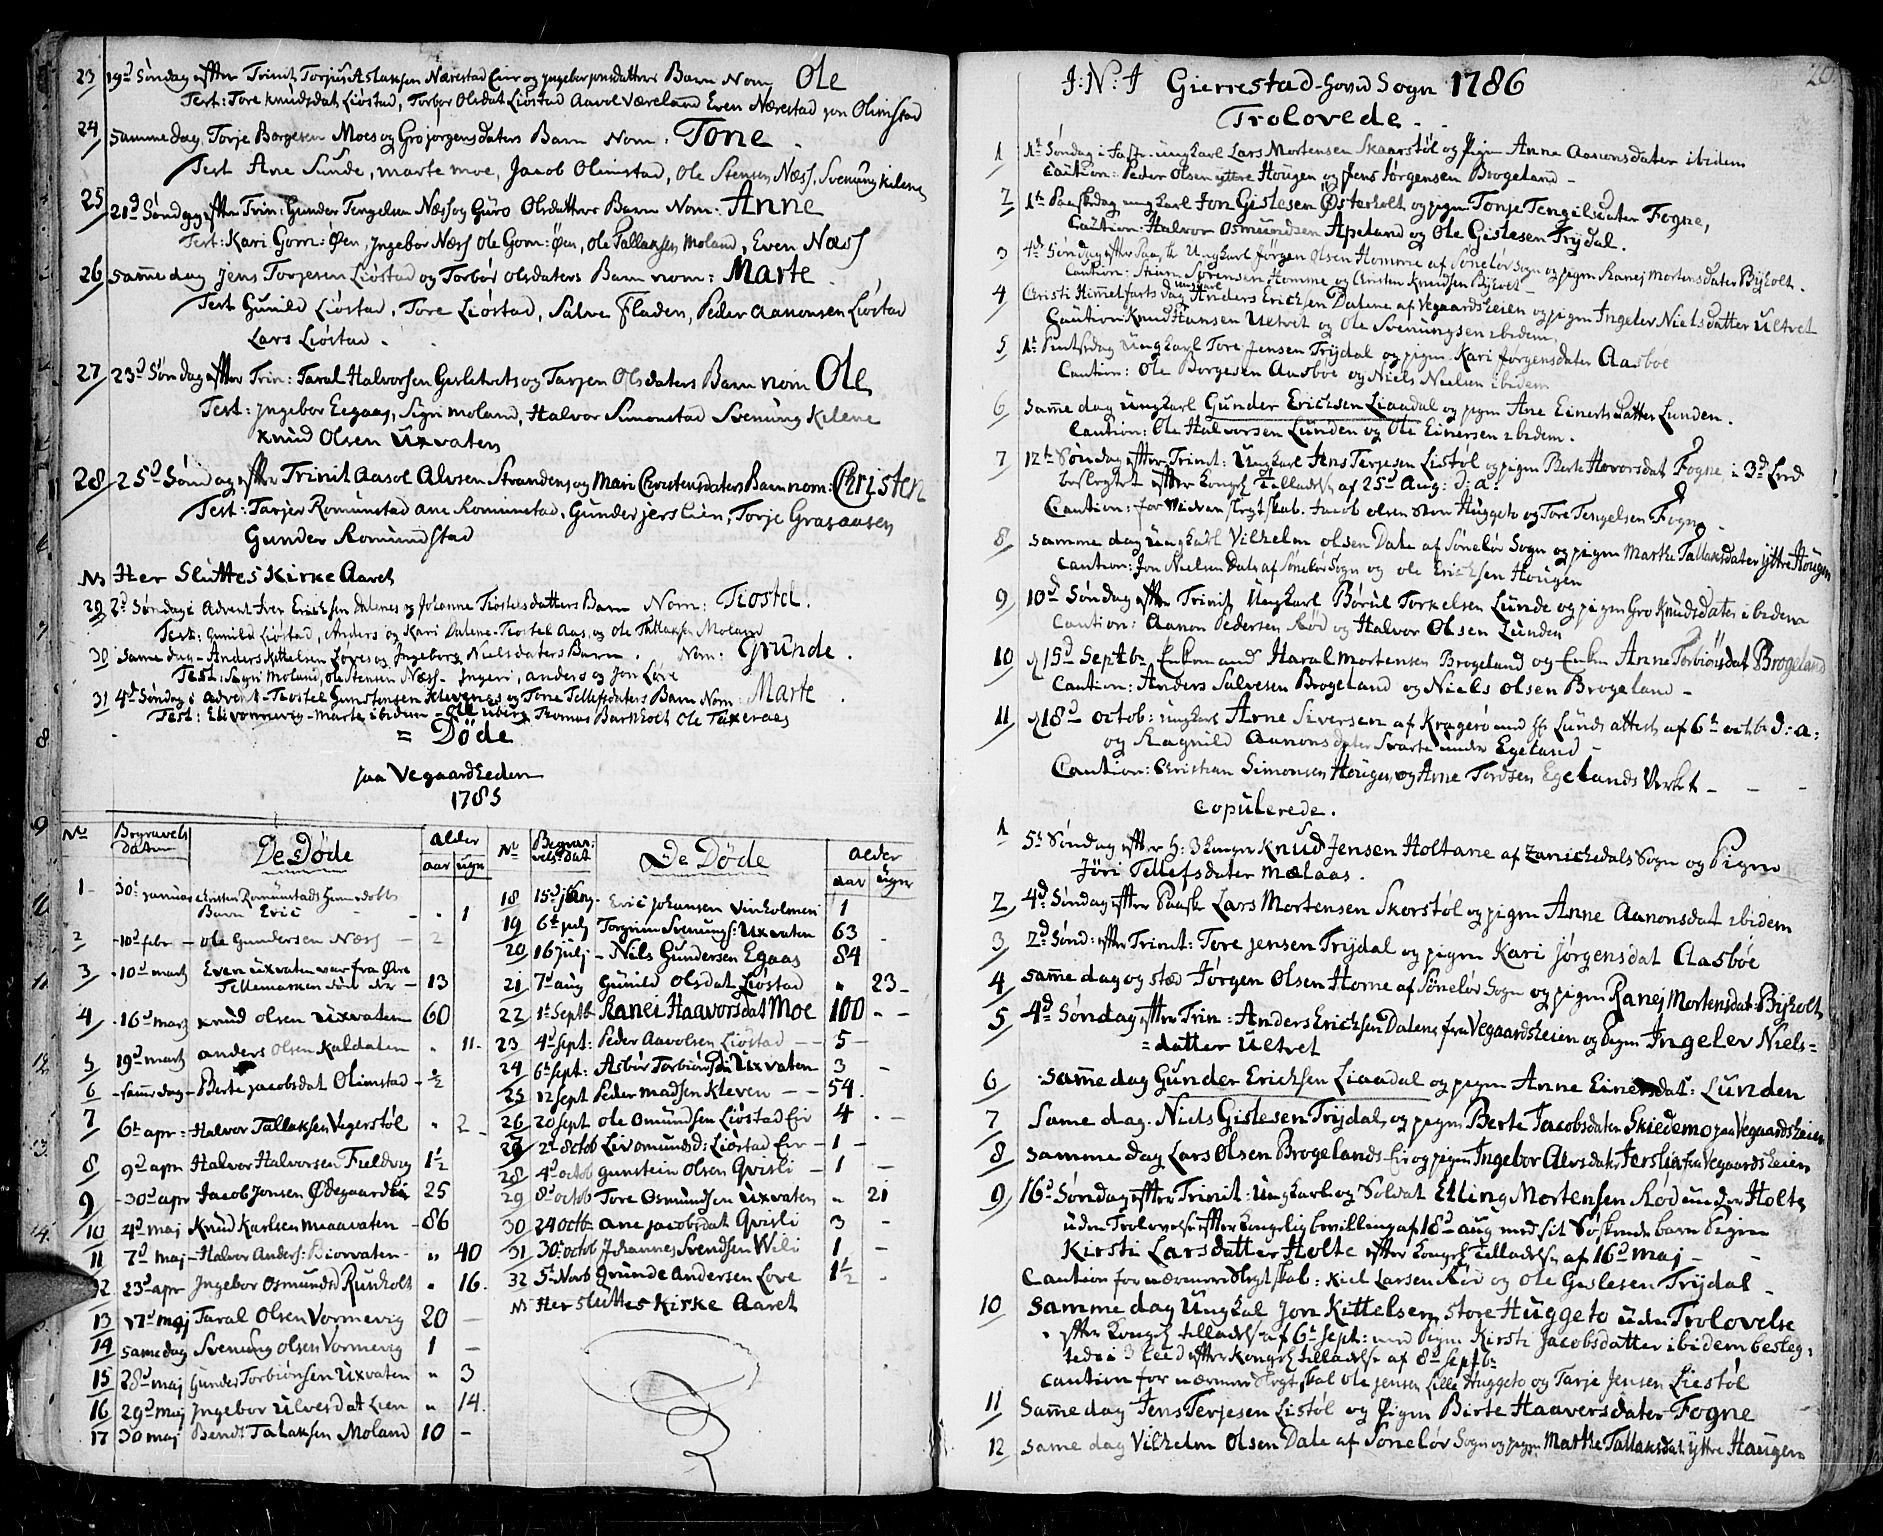 23 19d Søndag efter Trinit Torjus Aslaksen Nærestad Eier og Ingebor Jonsdatters Barn Nom Ole
Test: Tore Knudsdat Liøstad, Torbor Olsdat Liøstad Aavol Væreland Even Nærestad Jon Olimstad
24 samme dag, Torje Borgesen Moes og Gro Jørgensdaters Barn Nom: Tone
Test Ane Sunde, Marte Moe, Jacob Olimstad, Ole Stensen Næss, Svenung Kilene
25 21d Søndag efter Trin: Gunder Tengelsen Næss og Guro Olsdatters Barn Nom: Anne
Test: Kari Gom: Øen, Ingebor Næss Ole Gom: Øen, Ole Tallaksen Moland, Even Næss
26 samme dag Jens Torjesen Liøstad og Torbor Olsdaters Barn nom: Marte
Test Gunild Liøstad, Tore Liøstad, Salve Fladen, Peder Aanonsen Liøstad
Lars Liøstad.
27 23d Søndag efter Trin: Taral Halvorsen og Tarjer Olsdaters Barn nom Ole
Test: Ingebor Eegaas, Sigri Moland, Halvor Simonstad Svenung Kilene
Knud Olsen Uxvaten
28 25d Søndag efter Trinit Aasol Alvsen Strandens og Mari Christensdaters Barn nom: Christen
Test: Tarjer Romunstad Ane Romunstad, Gunder Jerslien, Torje Grasaasen
Gunder Romundstad
NB Her Sluttes Kirke Aaret
29 2d Søndag i Advent Iver Ericksen Dalenes og Johanne Tiostelsdatters Barn Nom: Tiostel.
Test: Gunild Liøstad, Anders og Kari Dalene Tiostel Aas, og Ole Tallaksen Moland
30 samme dag - Anders Kittelsen Løves og Ingeborg Nielsdaters Barn Nom: Grunde.
Test: Sigri Moland, Ole Stensen Næss - Ingeri, Anders og Jon Løve
31 4d Søndag i Advent - Tiostel Gunstensen Klevenes og Tone Tellefsdaters Barn Nom: Marte
Test: Eli Vormevig - Marte ibidem - Ole Uberg Thomas Barkholt Ole Taxeraas
= Døde
paa Vegaardheden
1785
No Begravels Datum De Døde Alder aar uger
1 30t Januar Christen Romunstads Barn Eric " 1
2 10d febr Ole Gundersen Næss 2
3 10d marts Even Uxvaten var fra Øvre Tellemarken 13
4 16d marts Knud Olsen Uxvaten 60
5 19d marts Anders Olsen Kaldaten " 11
6 samme dag Berte Jacobsdat Olimstad ½
7 6t apr: Halvor Tallaksen Vegerstøl " 2
8 9d apr Halvor Halvorsen Fieldvig 1½
9 30d apr Jacob Jonsen Ødegaard 25
10 4d maj Knud Karlsen Maavaten 86
11 7d maj Halvor Anders: Biorvaten " 40
12 23d apr Ingebor Osmundsd Runholt " 16
13 17d maj Taral Olsen Vormevig 20 -
14 samme dag Svenung Olsen Vormevig 1 -
15 28d maj Gunder Torbiønsen Uxvaten " 3
16 29d maj Ingebor Ulvesdat Lien " 14
17 30 maj Bendt Talaksen Moland 10 -
No Begravelsdat De Døde Alder aar uger
18 15d Eric Johansen Vinholmen 1
19 6t julj Torgrim Svenungs: Uxvaten 63 -
20 16 julj Nils Gundersen Egaas 84
21 7d aug Gunild Olsdat Liøstad " 23
22 1t Septb Ranei Haavorsdat Moe 100 - -
23 4d sept: Peder Aavolsen Liøstad 5 -
24 6t sept: Asbør Torbiønsd: Uxvaten 3 -
25 12 sept Peder Madsen Kleven 54
26 20 sept Ole Omundsen Liøstad Eir 4 -
27 2d octob Liv Omundsd: Liøstad Eir 1 -
28 4d octob Gunstein Olsen Qvisli 1 -
29 8d octob Tore Osmundsen Uxvaten " 21
30 24 octb Ane Jacobsdat Qvisli 3 -
31 30t octob Johannes Svendsen Wili 1 -
32 5t Novb Grunde Andersen Løve 1½ -
NB Her sluttes Kirke Aaret
I: N: I Gierrestad Hoved Sogn 1786
Trolovede.
1 1t Søndag i Faste. Ungkarl Lars Mortensen Skaarstøl og Pigen Anne Aanonsdater ibidem
Caution: Peder Olsen yttre Hougen og Jens Jørgensen Brogeland -
2 1t Paaskedag ungkarl Jon Gislesen Østerholt og pigen Tonje Tengilsdater Fogne,
Caution: Halvor Osmundsen Apeland og Ole Gislesen Trydal.
3 4d Søndag efter Paaske Ungkarl Jørgen Olsen Homme af Sønelør Sogn og pigen Ranei Mortensdater Byholt.
Caution: Sørensen Homme og Christen Knudsen Byholt -
4 Christi Himmelfarts dag ungkarl Anders Ericksen Dalene af Vegaardsheien og pigen Ingelev Nielsdatter Ultvet
Caution Knud Hansen Ultvet og Ole Svenungsen ibidem
5 1t Pintsedag Ungkarl Tore Jensen Trydal og pigen Kari Jørgensdater Aasboe
Caution: Ole Borgesen Aasboe og Niels Nielsen ibidem
6 samme dag ungkarl Gunder Ericksen Liaadal og pigen Ane Einersdatter Lunden.
Caution: Ole Halvorsen Lunden og Ole Einersen ibidem.
7 12t Søndag efter Trinit: Ungkarl Jens Terjesen Listøl og pigen Berte Hovorsdat Fogne i 3d Leed
beslegtet efter Kongel Tilladelse af 25d Aug: d: a:
Caution: for Slegtskab. Jacob Olsen Store Huggeto og Tore Tengelsen Fogne
8 samme dag Ungkarl Vilhelm Olsen Dale af Sønelør Sogn og pigen Marthe Tallaksdater Yttre Hougen
Caution: Jon Nielsen Dale af Sønelør Sogn og Ole Ericksen Hougen
9 10d Søndag efter Trinit Ungkarl Børul Torkelsen Lunde og pigen Gro Knudsdater ibidem
Caution: Aanon Pedersen Rød og Halvor Olsen Lunden
10 d 15d Septbr Enkemand Haral Mortensen Brogeland og Enken Anne Torbiønsdat Brogeland
Caution: Anders Salvesen Brogeland og Niels Olsen Brogeland -
11 d 18d octob: ungkarl Arne Siversen af Kragerø med Hr Lunds attest af 6t octbr d: a:
og Ragnild Aanonsdater Svarte under Egeland -
Caution: Christian Simonsen Hougen, og Arne Tordsen Egelands Verket -
Copulerede.
1 5t Søndag efter H: 3 Konger Knud Jensen Holtane af Zanichedals Sogn og Pigen
Jöri Tellefsdater Mælaas.
2 4d: Søndag efter Paaske Lars Mortensen Skorstøl og pigen Anne Aanonsdat ibidem
3 2d Sønd: efter Trinit: Tore Jensen Trydal og pigen Kari Jørgensdat Aasbøe
4 samme dag og sted Jørgen Olsen Home af Sønelør Sogn og pigen Ranej Mortensdat: Byholt
5 4d Søndag efter Trin: Anders Ericksen Dalene fra Vegaardsheien og Pigen Ingelev Niels=
=datter Ultvet
6 samme dag Gunder Ericksen Liaadal og pigen Anne Einersdat: Lunden
7 Same dag. Niels Gislesen Trydal, og pigen Berte Jacobsdater Skiedemo paa Vegaardsheien
8 samme dag Lars Olsen Brogelands Ei og pigen Ingebor Alvsdater Jerslia fra Vegaardsheien
9 16d Søndag efter Trinit: Ungkarl og Soldat Elling Mortensen Rød under Holte
uden Trolovelse efter Kongelig bevilling af 18d aug med sit Søskende barn Pigen
Kirsti Larsdatter Holte efter Kongel Tilladelse af 16d maj -
Caution for nærmere Slegtskab: Kiel Larsen Rød og Ole Gislesen Trydal -
10 Samme dag Ungkal Jon Kittelsen Store Huggeto uden Trolovelse
efter Kongel tilladelse af 6t sept: med Pigen Kirsti Jacobsdatter ibidem besleg
tede i 3 Leed efter Kongel tilladelse af 8d septb
Caution for nærmere Slegtskab Ole Jensen Lille Huggeto og Tarje Jensen Liestøl
11 Samme dag Jens Terjesen Listøl og Pigen Birte Haaversdater Fogne
12 same dag Vilhelm Olsen Dale af Sønelør Sogn og pigen Marthe Tallaksdat yttre Haugen